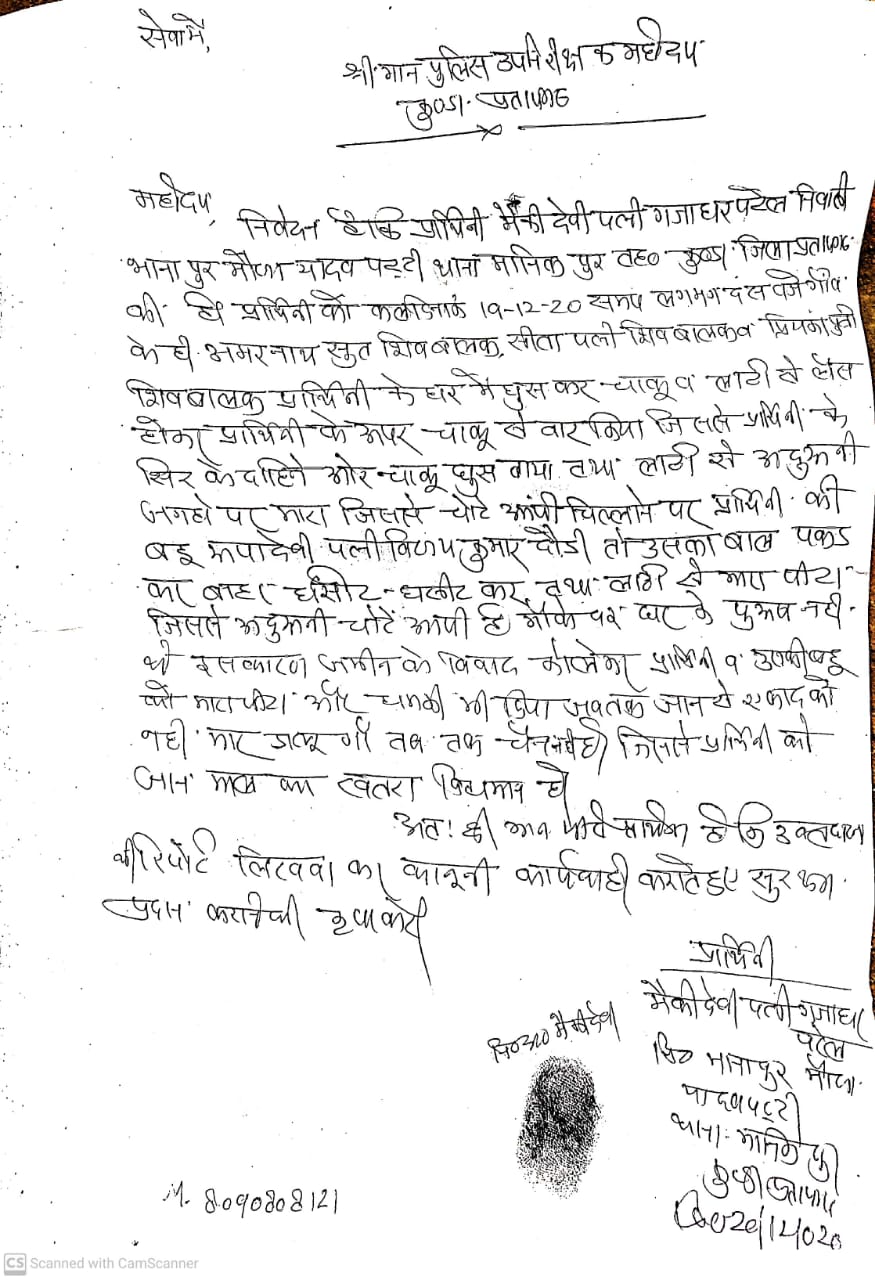 सेवामें,
श्रीमान पुलिस उपनिरीक्षक महोदय
कुण्डा प्रतापगढ
महोदय,
निवेदन है कि प्रार्थिनी मैकी देवी पत्नी गजाधर पटेल निवासी
भानापुर मौजा यादव पट्टी थाना मानिकपुर तह० कुण्डा जिला प्रतापगढ
की है प्रार्थिनी को कल दिनांक 19-12-20 समय लगभग दस वजे गाँव
के ही अमरनाथ सुत शिवबालक, सीता पत्नी शिवबालक व प्रियंका पुत्री
शिवबालक प्रार्थिनी के घर में घुस कर चाकू व लाठी से लैस
होकर प्रार्थिनी के ऊपर चाकू से वार किया जिससे प्रार्थिनी के
सिर के दाहिने ओर चाकू घुस गया तथा लाठी से अदुरूनी
जगहो पर मारा जिससे चोटे आयी चिल्लाने पर प्रार्थिनी की
बहू रूपादेवी पत्नी विजय कुमार दौडी तो उसका बाल पकड
कर बाहर घसीट-घसीट कर तथा लाठी से मारा पीटा
जिससे अदुरूनी चोटें आयी है मौके पर घर के पुरूष नही
थे इस कारण जमीन के विवाद को लेकर प्रार्थिनी व उसकी बहू
को मारा पीटा और धमकी भी दिया जबतक जान से एकाद को
नही मार डालूगाँ तब तक चैन नही है जिससे प्रार्थिनी को
जान माल का खतरा विद्यमान है
अतः श्री मान जी से प्रार्थना है कि उक्त
की रिपोर्ट लिखवा कर कानूनी कार्यवाही कराते हुए सुरक्षा
प्रदान कराने की कृपा करें
प्रार्थिनी
मैकी देवी पत्नी गजाधर
पटेल
नि० भानापुर मौजा
यादव पट्टी
थाना मानिकपुर
कुण्डा प्रतापगढ
नि०अ० मैकी देवी
M. 8090808121
CS Scanned with CamScanner